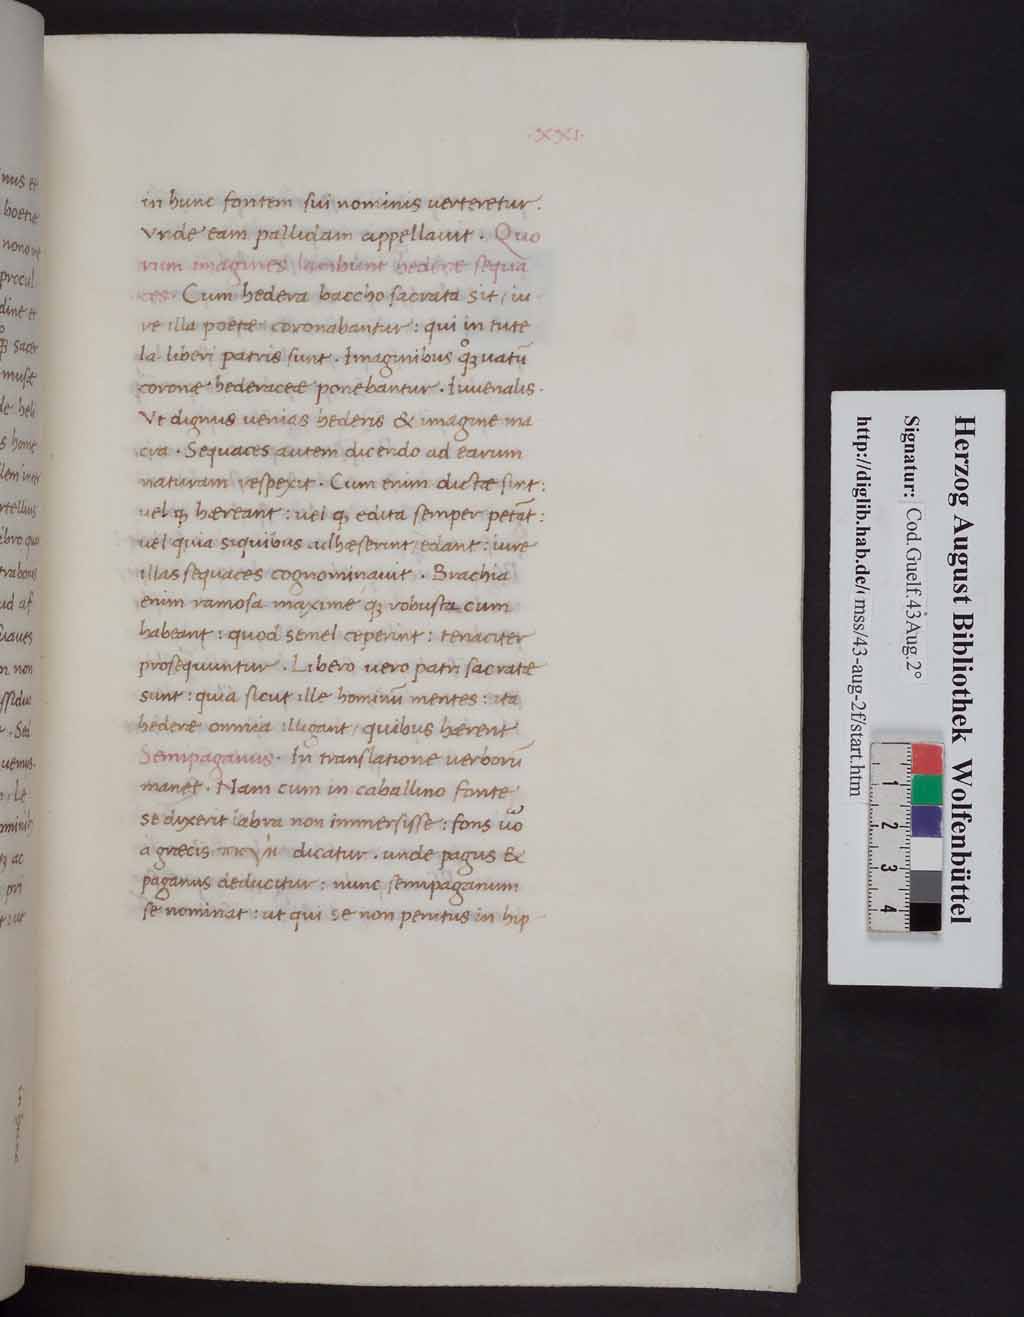 nus et
boetie
procul
dine et
sacer
musæ
de heli
s home
lem inter
rtellius
ibro quo
ud af
suaues
n non
ssidue
. Sed
uenus
ac
pri
·XXI·
in hunc fontem sui nominis uerteretur.
Vnde eam pallidam appellauit. Quo
rum imagines lambunt hederæ sequa
ces. Cum hedera baccho sacrata sit, iu
re illa poetæ coronabantur: qui in tute
la liberi patris sunt. Imaginibus qͦꝫ uatū
coronæ hederaceæ ponebantur. Iuuenalis.
Vt dignus uenias hederis & imagine ma
cra. Sequaces autem dicendo ad earum
naturam respexit. Cum enim dictæ sint:
uel ꝙ hæreant: uel ꝙ edita semper petāt:
uel quia siquibus adhæserint, edant: iure
illas sequaces cognominauit. Brachia
enim ramosa maxime qꝫ robusta cum
habeant: quod semel ceperint: tenaciter
prosequuntur. Libero uero patri sacratæ
sunt: quia sicut ille hominū mentes: ita
hederæ omnia illigant, quibus hærent
Semipaganus. In translatione uerborū
manet. Nam cum in caballino fonte
se dixerit labra non immersisse: fons uͦo
a græcis dicatur. unde pagus &
paganus deducitur: nunc semipaganum
se nominat: ut qui se non penitus in hip
Herzog August Bibliothek Wolfenbüttel
Signatur: Cod.Guelf.43 Aug.2°
http://diglib.hab.de/mss/43-aug-2f/start.htm
1
2
3
4